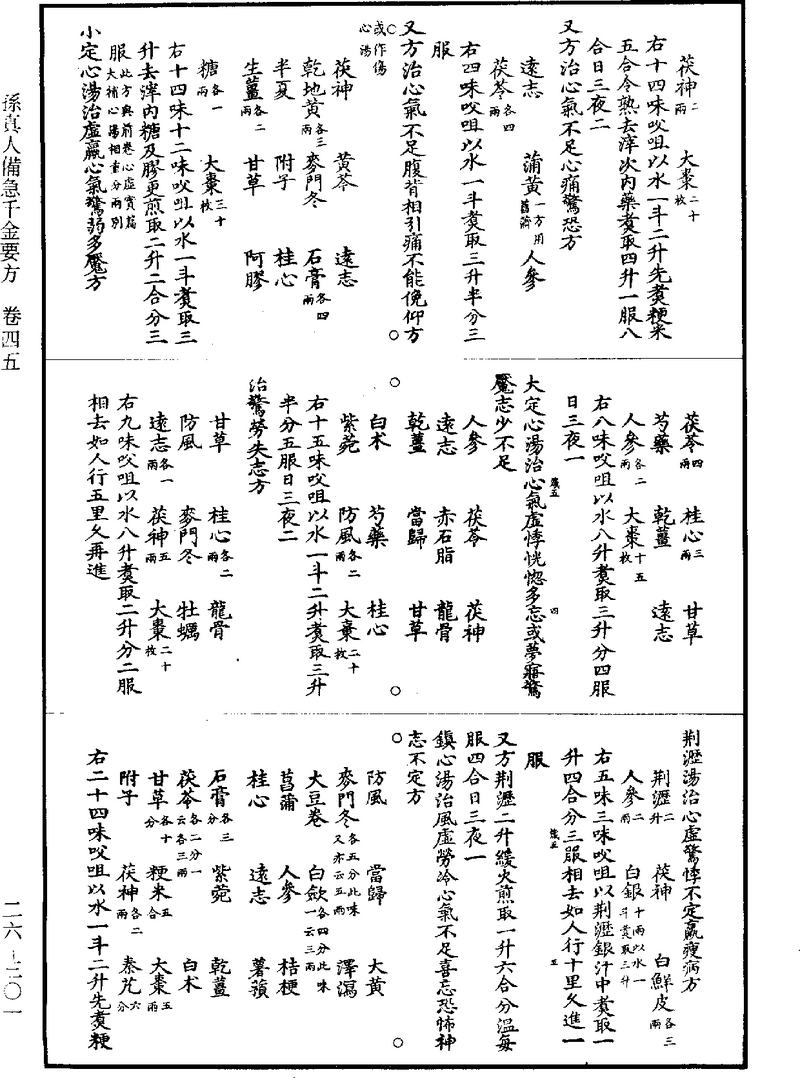 茯神二兩　大棗二十枚
右十四味㕮咀以水一斗二升先煑粳米
五合令熟去滓次内藥煑取四升一服八
合日三夜二
又方治心氣不足心痛驚恐方
遠志　蒲黃一方用菖蒲　人參
茯苓各四兩
右四味㕮咀以水一斗煑取三升半分三
服
又方治心氣不足腹背相引痛不能俛仰方
○或作傷心湯
茯神　黃芩　遠志
乾地黃各三兩　麥門冬　石膏各四兩
半夏　附子　桂心
生薑各二兩　甘草　阿膠
糖各一兩　大棗三十枚
右十四味十二味㕮咀以水一斗煑取三
升去滓内糖及膠更煎取二升二合分三
服此方與前卷心虛實篇大補心湯相重分兩別
小定心湯治虛羸心氣驚弱多魘方
茯苓四兩　桂心三兩　甘草
芍藥　乾薑　遠志
人參各二兩　大棗十五枚
右八味㕮咀以水八升煑取三升分四服
日三夜一
大定心湯治心氣虛悸恍惚多忘或夢寤驚
魘志少不足
人參　茯苓　茯神
遠志　赤石脂　龍骨
乾薑　當歸　甘草
白朮　芍藥　桂心
紫菀　防風各二兩　大棗二十枚
右十五味㕮咀以水一斗二升煑取三升
半分五服日三夜二
治驚勞失志方
甘草　桂心各二兩　龍骨
防風　麥門冬　牡蠣
遠志各一兩　茯神五兩　大棗二十枚
右九味㕮咀以水八升煑取二升分二服
相去如人行五里久再進
荆瀝湯治心虛驚悸不定羸瘦病方
荆瀝二升　茯神　白鮮皮各三兩
人參二兩　白銀十兩以水一斗煑取三升
右五味三味㕮咀以荆瀝銀汁中煑取一
升四合分三服相去如人行十里久進一
服
又方荆瀝二升緩火煎取一升六合分溫每
服四合日三夜一
鎮心湯治風虛勞冷心氣不足喜忘恐怖神
志不定方
防風　當歸　大黃
麥門冬各五分此味又亦云五兩　澤瀉
大豆卷　白歛各四分此味一云三兩
菖蒲　人參　桔梗
桂心　遠志　薯蕷
石膏各三分　紫菀　乾薑
茯苓各二分一云各三兩　白朮
甘草各十分　粳米五合　大棗五兩
附子　茯神各二兩　秦艽六分
右二十四味㕮咀以水一斗二升先煑粳
孫真人備急千金要方　卷四五
二六－二〇一